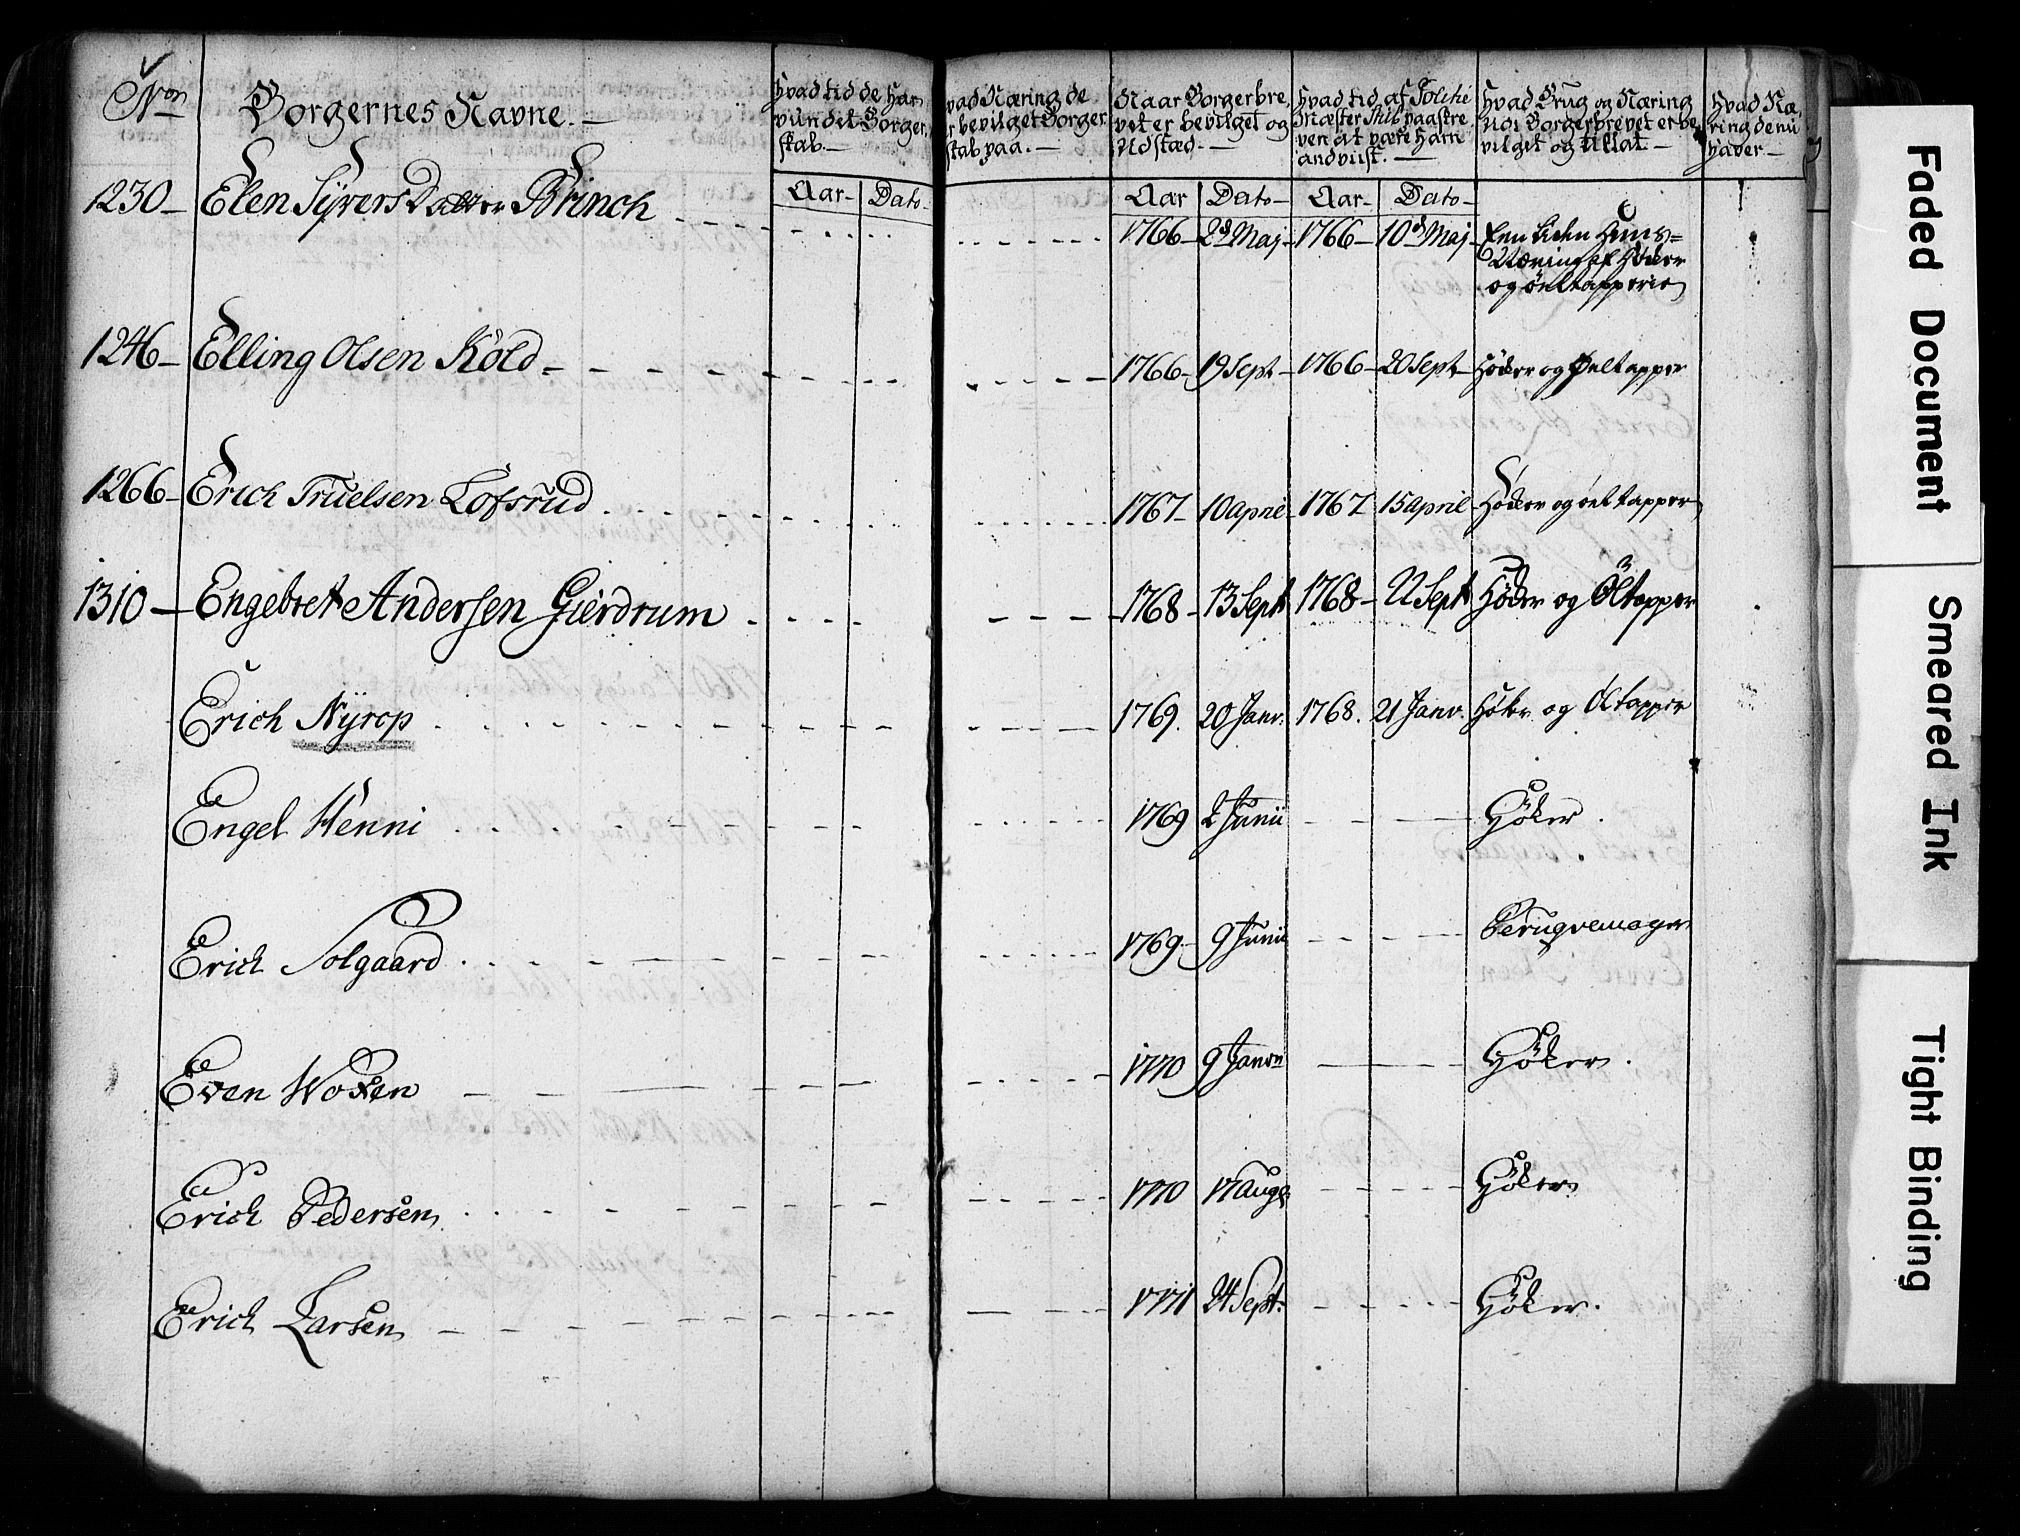 Nron
Borgernes Navne.
Hvad tid de Har
vundet Borger
skab.
Aar Dato
vad Næring de
er bevilget Borger
skab paa.
Naar Borgerbre
vet er bevilget og
Udstæd.
Aar Dato
Hvad tid af Politie
Mæster Skil paaskre
ven at være Ham
andviist.
Aar Dato
Hvad Brug og Næring
udi Borgerbrevet er be
vilget og tillat
Hvad Næ
ring de nu
hader
1230 Elen Syvers Datter Brinch 1766 2d Maj 1766 10d Maj Een liden Huus=
Næring af Høker
og øeltapperie
1246 Elling Olsen Kold 1766 19 Sept 1766 20 Sept Høker og Øeltapper
1266 Erich Truelsen Lofsrud 1767 10 april 1767 15 april Høker og øeltapper
1310 Engebret Andersen Gierdrum 1768 13 Sept 1768 22 Sept Høker og Öltapper
Erich Nyrop 1769. 20 Janv. 1768. 21 Janv. Høker og Öltapper
Engel Henni 1769 2 Junii Høker.
Erich Solgaard 1769 9 Junii Peruqvemager
Even Woxen 1770 9 Janv Høker.
Erich Pedersen 1770 17 Aug Høker
Erich Larsen 1771 24 Sept. Høker.
Faded Document
Smeared Ink
Tight Binding